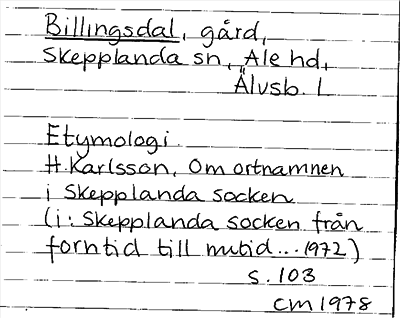 Billingsdal, gård,
Skepplanda sn, Ale hd,
Älvsb. l
Etymologi
H. Karlsson, Om ortnamnen
i Skepplanda socken
(i: Skepplanda socken från
forntid till nutid... 1972)
s. 103
CM 1978